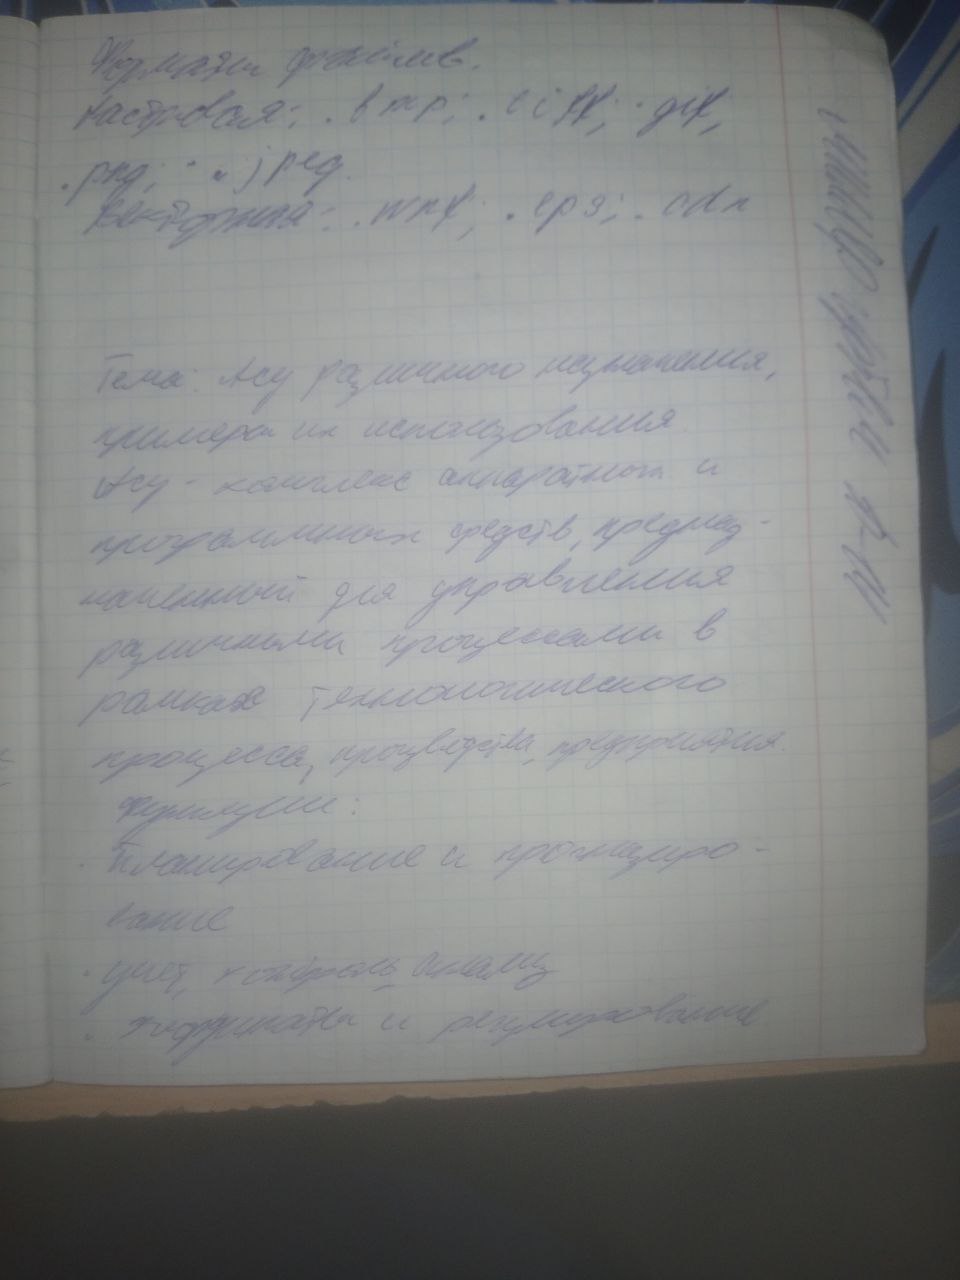 Форматы файлов.
Растровая: .bmp; .tiff; .gif,
.png; .jpeg.
Векторная: .wmf; .eps; .cdr
Тема: Асу различного назначения,
примеры их использования.
Асу - комплекс аппаратных и
программных средств, предназ-
наченный для управления
различными процессами в
рамках технологического
процесса, производства, предприятия.
Функции:
· Планирование и прогнозиро-
вание
· учет, контроль, анализ
· и регулирование